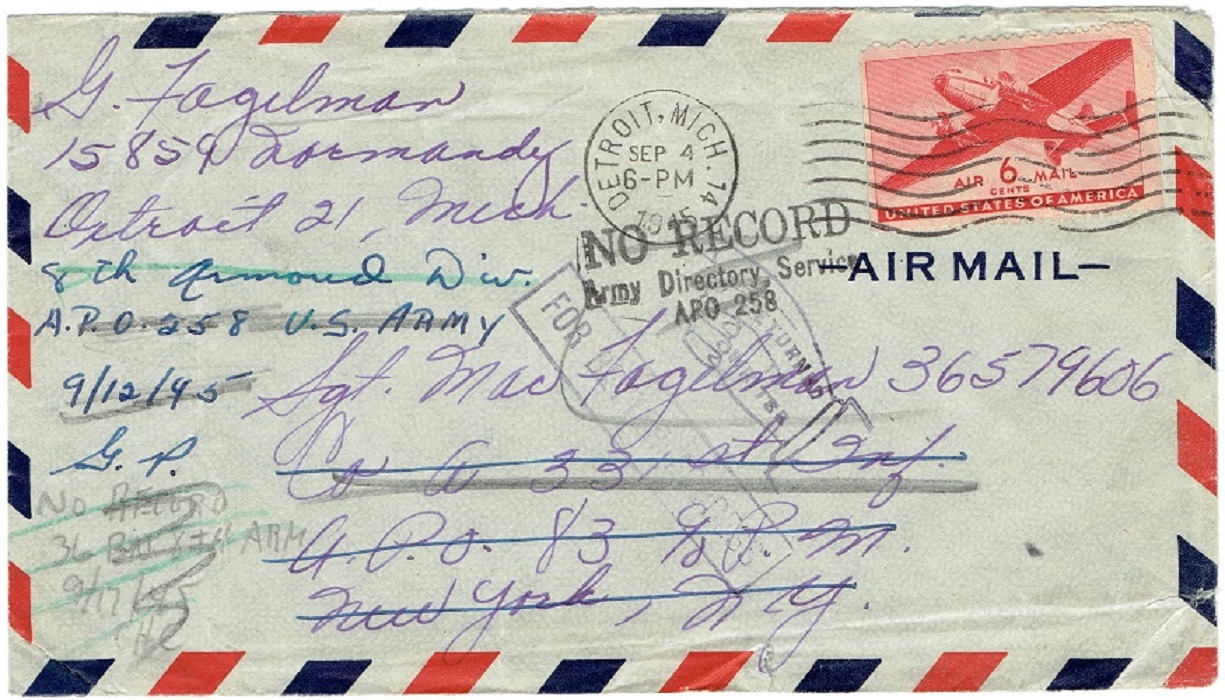 G. Fogelman
15859 Normandy
Detroit 21, Mich.
8th Armoud Div.
A.P.O. 258 U.S. ARMY
9/12/45
G. P.
NO RECORD
36 8TH ARM
9/17/45
DETROIT, MICH. 14
SEP 4
6-PM
1945
NO RECORD
Army Directory Service
APO 258
AIR 6 MAIL
CENTS
UNITED STATES OF AMERICA
—AIR MAIL—
FOR
Sgt. Mac Fogelman 36579606
Co A 331st Inf.
A.P.O. 83 % P.M.
New York, N.Y.